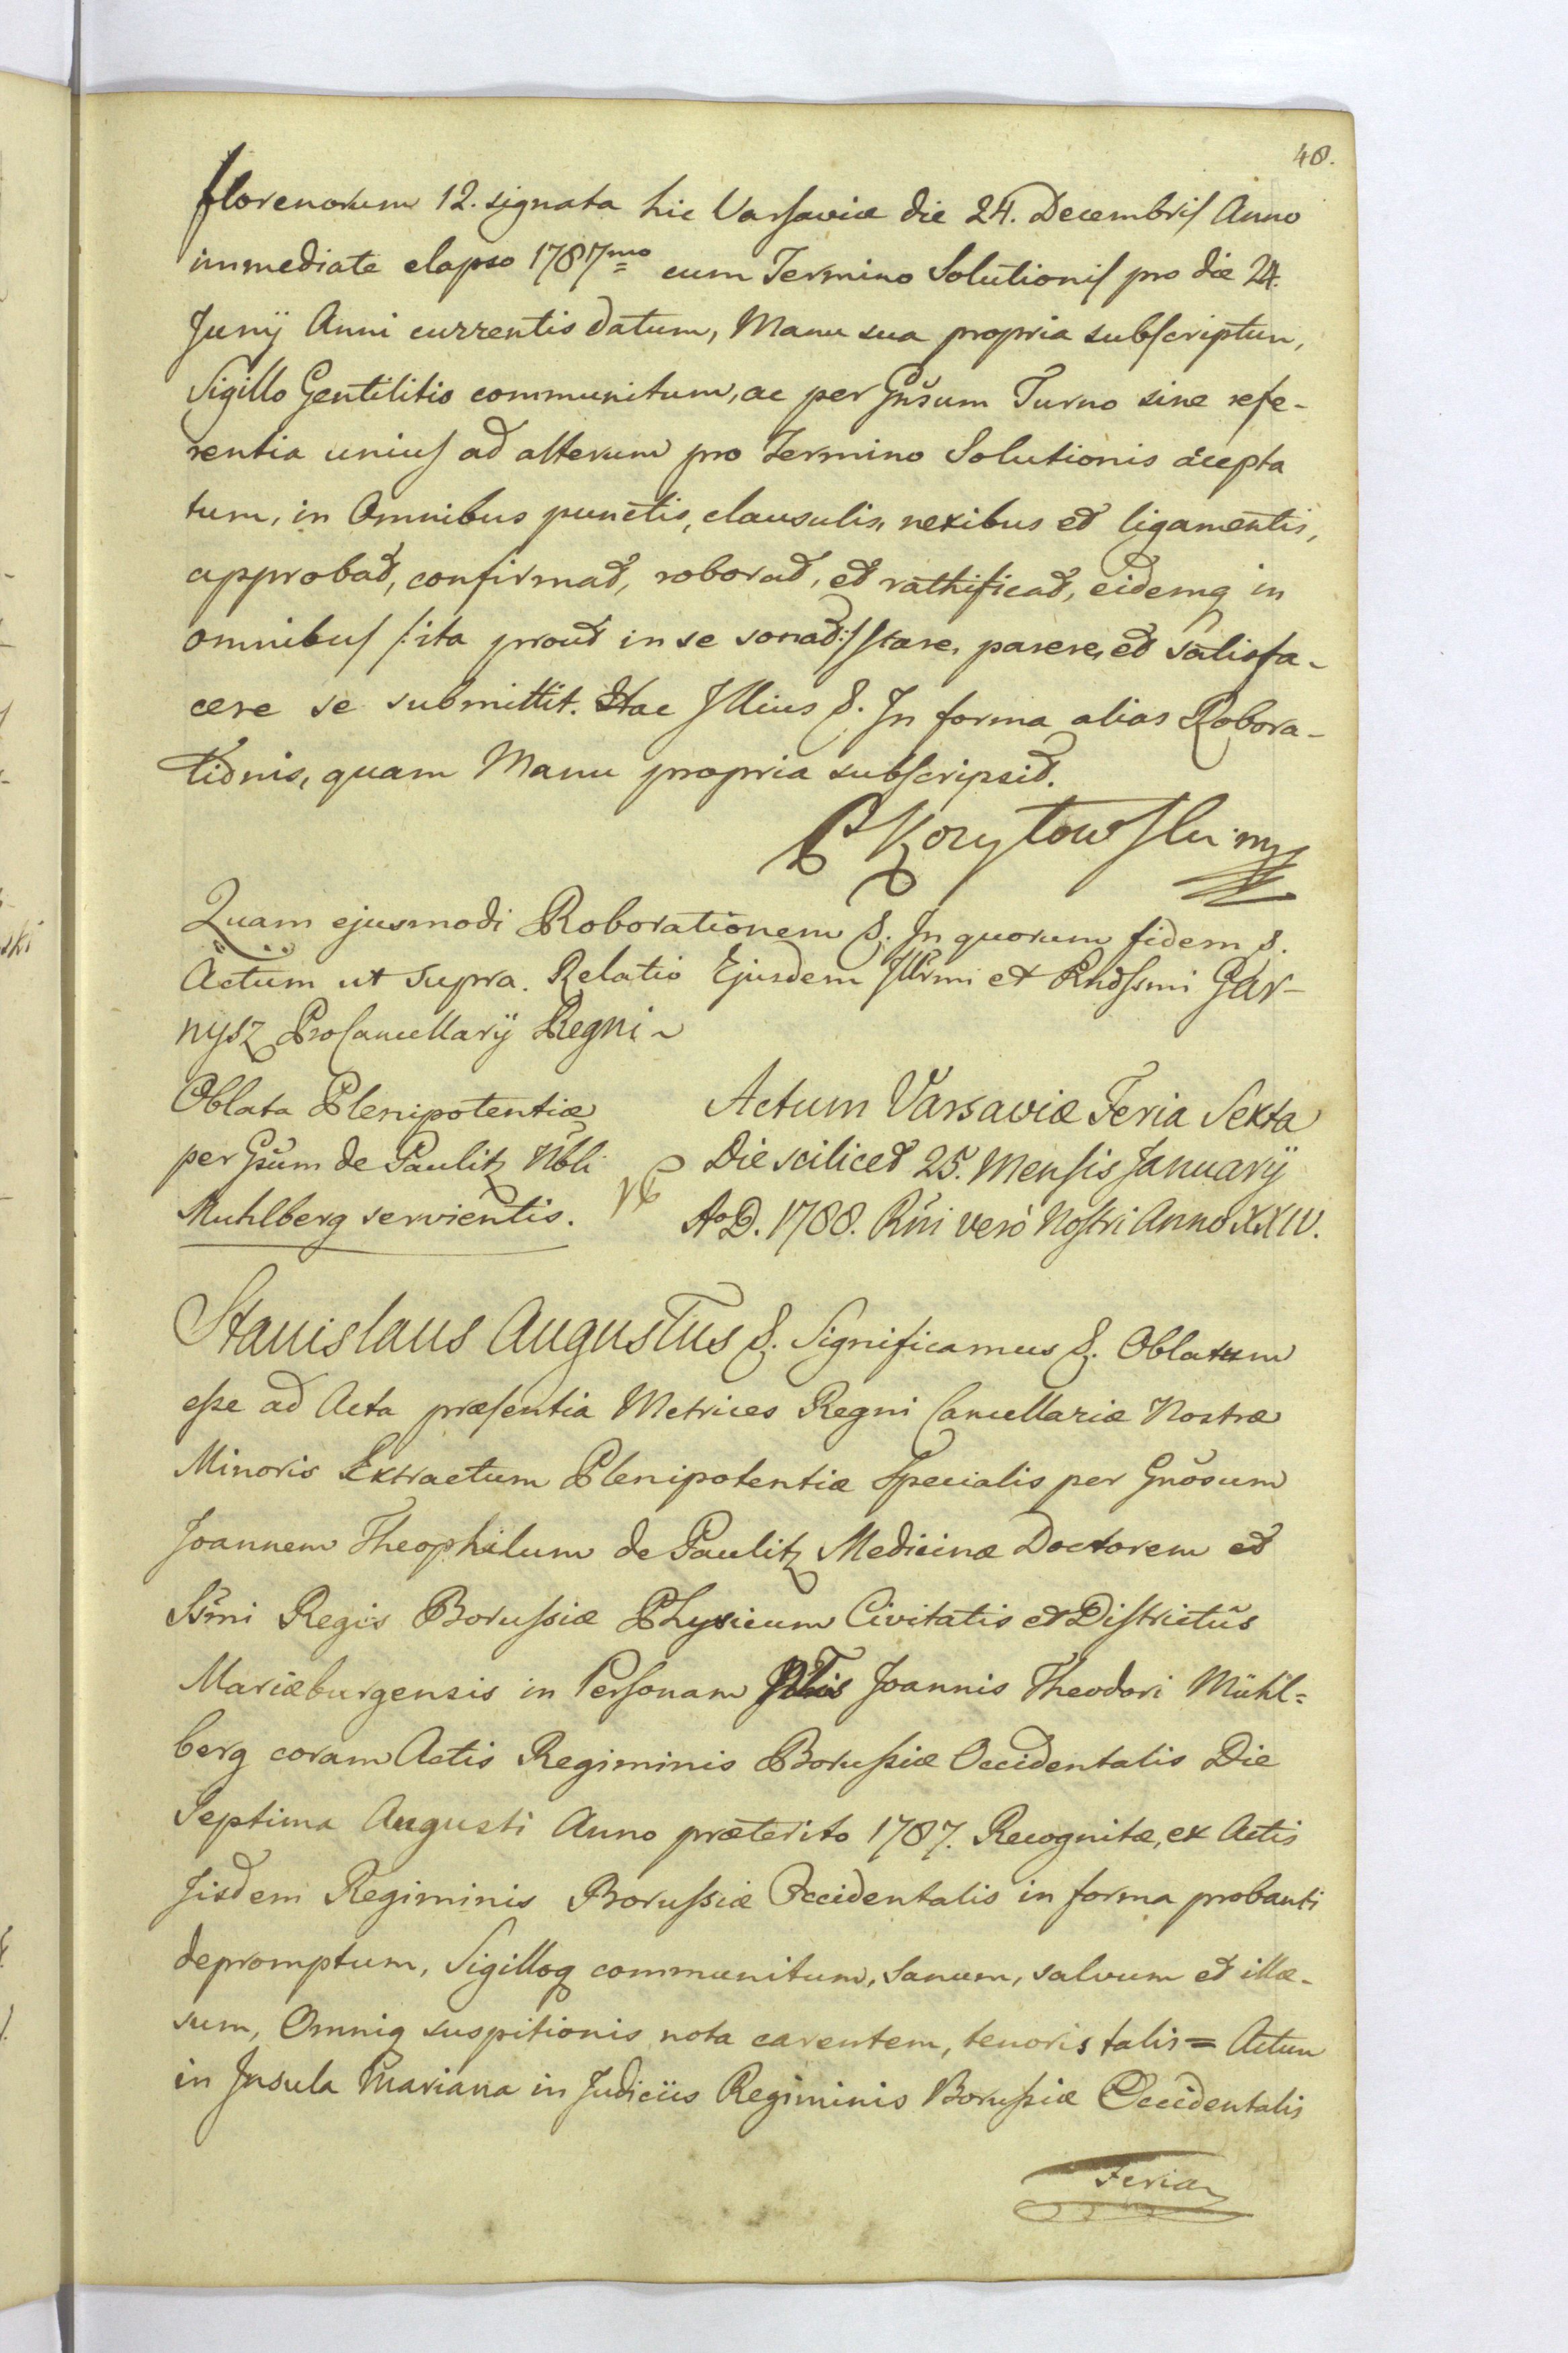 48.
florenorum 12. signata hic Varsaviæ die 24. Decembris Anno
immediate elapso 1787mo cum Termino Solutionis pro die 24.
Junÿ Anni currentis datum, Manu sua propria subscriptum,
Sigillo Gentilitio communitum, ac per Gnsum Turno sine refe-
rentia unius ad alterum pro Termino Solutionis accepta
tum, in Omnibus punctis, clausulis, nexibus et ligamentis,
approbat, confirmat, roborat, et rathificat, eidemq in
omnibus /:ita prout in se sonat:/ stare, parere, et satisfa-
cere se submittit. Hac Illius &. In forma alias Robora-
tionis, quam Manu propria subscripsit.
Korytowski mp
Quam ejusmodi Roborationem &. In quorum fidem &.
Actum ut supra. Relatio Ejusdem Illrmi et Rndssmi Gar-
nysz ProCancellarÿ Regni
Oblata Plenipotentiæ
per Gsum de Paulitz Nbli
Muhlberg servientis.
Actum Varsaviæ Feria Sexta
Die scilicet 25. Mensis Januarÿ
AoD. 1788. Rni vero Nostri Anno XXIV.
Stanislaus Augustus &. Significamus &. Oblatum
esse ad Acta præsentia Metrices Regni Cancellariæ Nostræ
Minoris Extractum Plenipotentiæ Specialis per Gnosum
Joannem Theophilum de Paulitz Medicinæ Doctorem et
Ssmi Regis Borussiæ Physicum Civitatis et Districtûs
Mariæburgensis in Personam Joannis Theodori Mühl=
berg coram Actis Regiminis Borussiæ Occidentalis Die
Septima Augusti Anno præterito 1787. Recognitæ, ex Actis
Jisdem Regiminis Borussiæ Occidentalis in forma probanti
depromptum, Sigilloq communitum, sanum, salvum et illæ-
sum, Omniq suspitionis nota carentem, tenoris talis = Actum
in Insula Mariana in Judiciis Regiminis Borussiæ Occidentalis
Feria